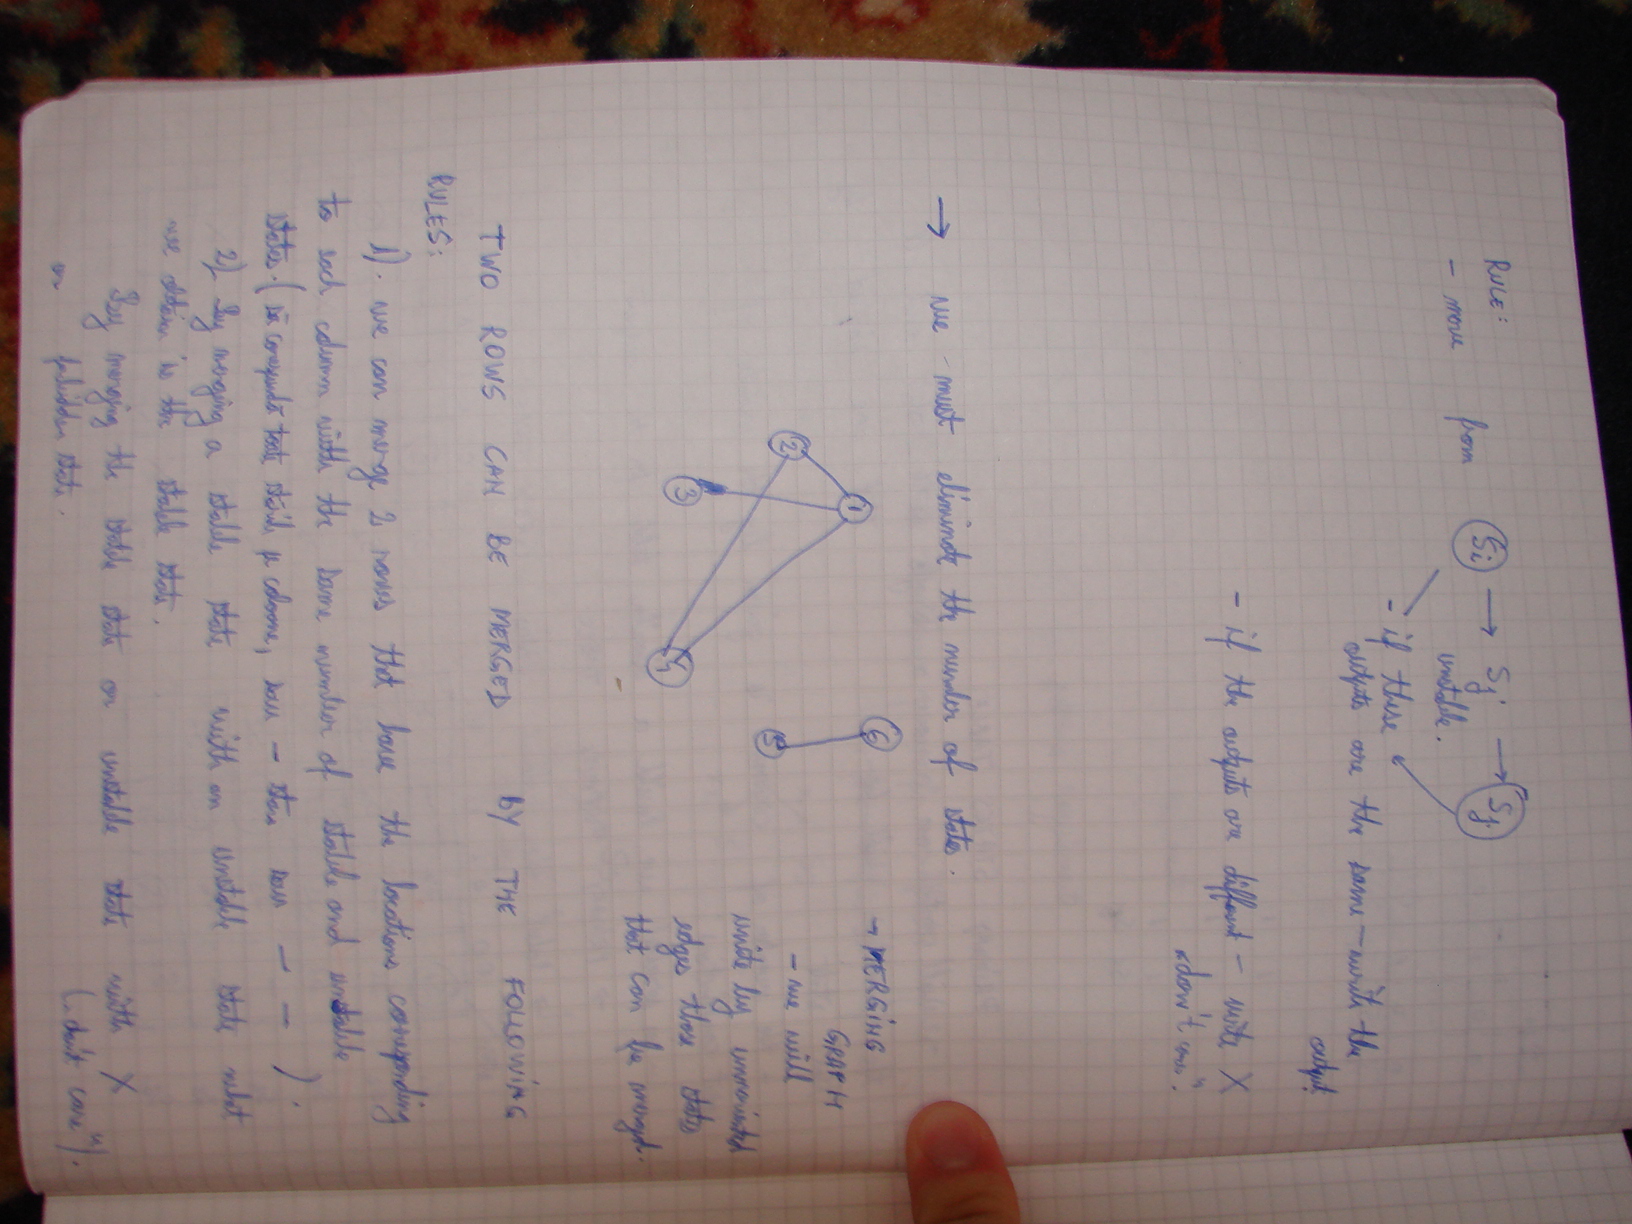 RULE:
- move from Si → Sj → Sj
unstable.
- if these
outputs are the same - write the
output
- if the outputs are different - write X
"don't care".
→ we must eliminate the number of states.
1
2
3
4
5
6
→ MERGING
GRAPH
- we will
unite by unoriented
edges those states
that can be merged.
TWO ROWS CAN BE MERGED BY THE FOLLOWING
RULES:
1). we can merge 2 rows that have the locations corresponding
to each column with the same number of stable and unstable
states. ( să corespundă toate stările pe coloane, sau - stare sau - - ).
2) By merging a stable state with an unstable state what
we obtain is the stable state.
By merging the stable state or unstable state with X
(„don't care").
or forbidden state.